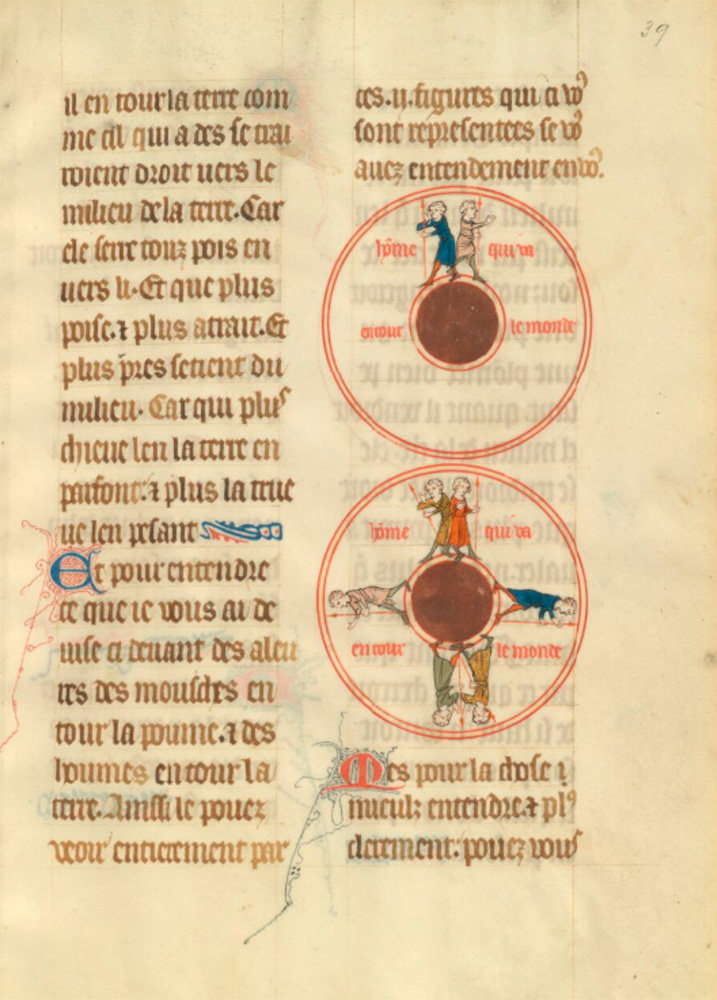 39
il en tour la terre com
me cil qui a des se trai
roient droit uers le
milieu de la terre. Car
ele sert touz pois en
uers li. Et que plus
poise. ⁊ plus atrait. Et
plus p̃res se tient du
milieu. Car qui plus
chieue len la terre en
parfont. ⁊ plus la true
ue len pesant
Et pour entendre
ce que ie vous ai de
uise ci deuant des aleu
res des mousches en
tour la poume. ⁊ des
houmes en tour la
terre. Ainssi le pouez
veoir entierement par
ces .ij. figures qui ci vo᷒
sont representees se vo᷒
auez entendement en vo᷒.
hõme qui va
en tour le monde
hõme qui va
en tour le monde
Mes pour la chose
mieulz entendre. ⁊ pl᷒
clerement. pouez vous